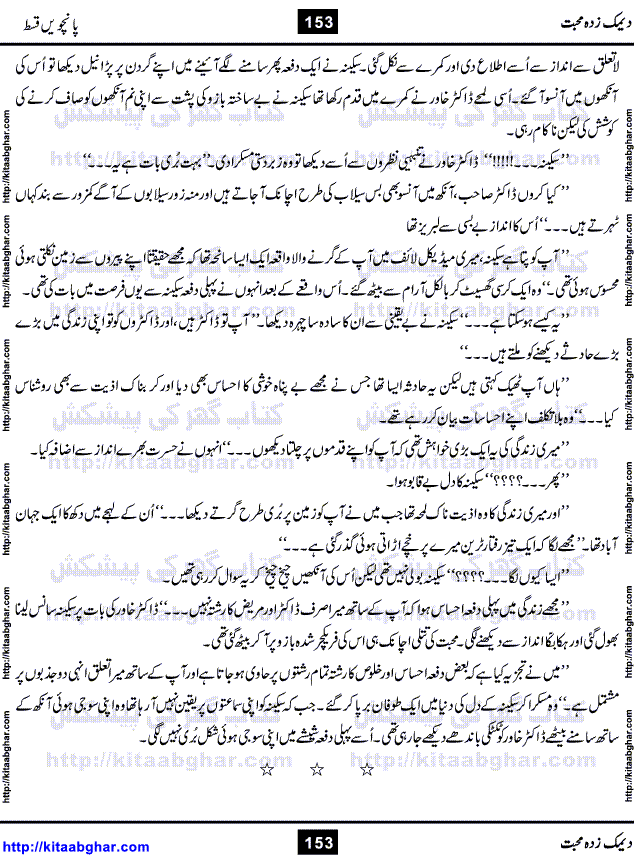 دیمک زدہ محبت 153 پانچویں قسط
لاتعلق سے انداز سے اُسے اطلاع دی اور کمرے سے نکل گئی۔ سکینہ نے ایک دفعہ پھر سامنے لگے آئینے میں اپنے گردن پر پڑا نیل دیکھا تو اُس کی
آنکھوں میں آنسو آ گئے۔ اُسی لمحے ڈاکٹر خاور نے کمرے میں قدم رکھا تھا سکینہ نے بے ساختہ بازو کی پشت سے اپنی نم آنکھوں کو صاف کرنے کی
کوشش کی لیکن ناکام رہی۔
’’سکینہ۔۔۔!!!!!‘‘ ڈاکٹر خاور نے تنبیہی نظروں سے اُسے دیکھا تو وہ زبردستی مسکرا دی۔’’بہت بُری بات ہے یہ۔۔۔‘‘
’’کیا کروں ڈاکٹر صاحب، آنکھ میں آنسو بھی بس سیلاب کی طرح اچانک آ جاتے ہیں اور منہ زور سیلابوں کے آگے کمزور سے بند کہاں
ٹہرتے ہیں۔۔۔‘‘ اُس کا انداز بے بسی سے لبریز تھا
’’آپ کو پتا ہے سکینہ، میری میڈیکل لائف میں آپ کے گرنے والا واقعہ ایک ایسا سانحہ تھا کہ مجھے حقیقتاً اپنے پیروں سے زمین نکلتی ہوئی
محسوس ہوئی تھی۔‘‘ وہ ایک کرسی گھسیٹ کر بالکل آرام سے بیٹھ گئے۔ اُس واقعے کے بعد انہوں نے پہلی دفعہ سکینہ سے یوں فرصت میں بات کی تھی۔
’’یہ کیسے ہو سکتا ہے۔۔۔‘‘ سکینہ نے بے یقینی سے ان کا سادہ سا چہرہ دیکھا۔’’آپ تو ڈاکٹر ہیں، اور ڈاکٹروں کو تو اپنی زندگی میں بڑے
بڑے حادثے دیکھنے کو ملتے ہیں۔۔۔‘‘
’’ہاں آپ ٹھیک کہتی ہیں لیکن یہ حادثہ ایسا تھا جس نے مجھے بے پناہ خوشی کا احساس بھی دیا اور کربناک اذیت سے بھی روشناس
کیا۔۔۔‘‘ وہ بلا تکلف اپنے احساسات بیان کر رہے تھے۔
’’میری زندگی کی یہ ایک بڑی خواہش تھی کہ آپ کو اپنے قدموں پر چلتا دیکھوں۔۔۔‘‘ انہوں نے حسرت بھرے انداز سے اضافہ کیا۔
’’پھر۔۔۔؟؟؟؟‘‘ سکینہ کا دل بے قابو ہوا۔
’’اور میری زندگی کا وہ اذیت ناک لمحہ تھا جب میں نے آپ کو زمین پر بُری طرح گرتے دیکھا۔۔۔‘‘ اُن کے لہجے میں دکھ کا ایک جہان
آباد تھا۔’’مجھے لگا کہ ایک تیز رفتار ٹرین میرے پرخچے اڑاتی ہوئی گذر گئی ہے۔۔۔‘‘
’’ایسا کیوں لگا۔۔۔؟؟؟؟‘‘ سکینہ بولی نہیں تھی لیکن اُس کی آنکھیں چیخ چیخ کر یہ سوال کر رہی تھیں۔
’’مجھے زندگی میں پہلی دفعہ احساس ہوا کہ آپ کے ساتھ میرا صرف ڈاکٹر اور مریض کا رشتہ نہیں۔۔۔‘‘ ڈاکٹر خاور کی بات پر سکینہ سانس لینا
بھول گئی اور ہکا بکا انداز سے دیکھنے لگی۔ محبت کی تتلی اچانک ہی اس کی فریکچر شدہ بازو پر آ کر بیٹھ گئی تھی۔
’’میں نے تجزیہ کیا ہے کہ بعض دفعہ احساس اور خلوص کا رشتہ تمام رشتوں پر حاوی ہو جاتا ہے اور آپ کے ساتھ میرا تعلق انہی دو جذبوں پر
مشتمل ہے۔‘‘ وہ مسکرا کر سکینہ کے دل کی دنیا میں ایک طوفان برپا کر گئے۔ جب کہ سکینہ کو اپنی سماعتوں پر یقین نہیں آ رہا تھا وہ اپنی سوجی ہوئی آنکھ کے
ساتھ سامنے بیٹھے ڈاکٹر خاور کو ٹکٹکی باندھے دیکھے جا رہی تھی۔ اُسے پہلی دفعہ شیشے میں اپنی سوجی ہوئی شکل بُری نہیں لگی۔
☆ ☆ ☆
دیمک زدہ محبت 153 http://kitaabghar.com
کتاب گھر کی پیشکش
http://kitaabghar.com